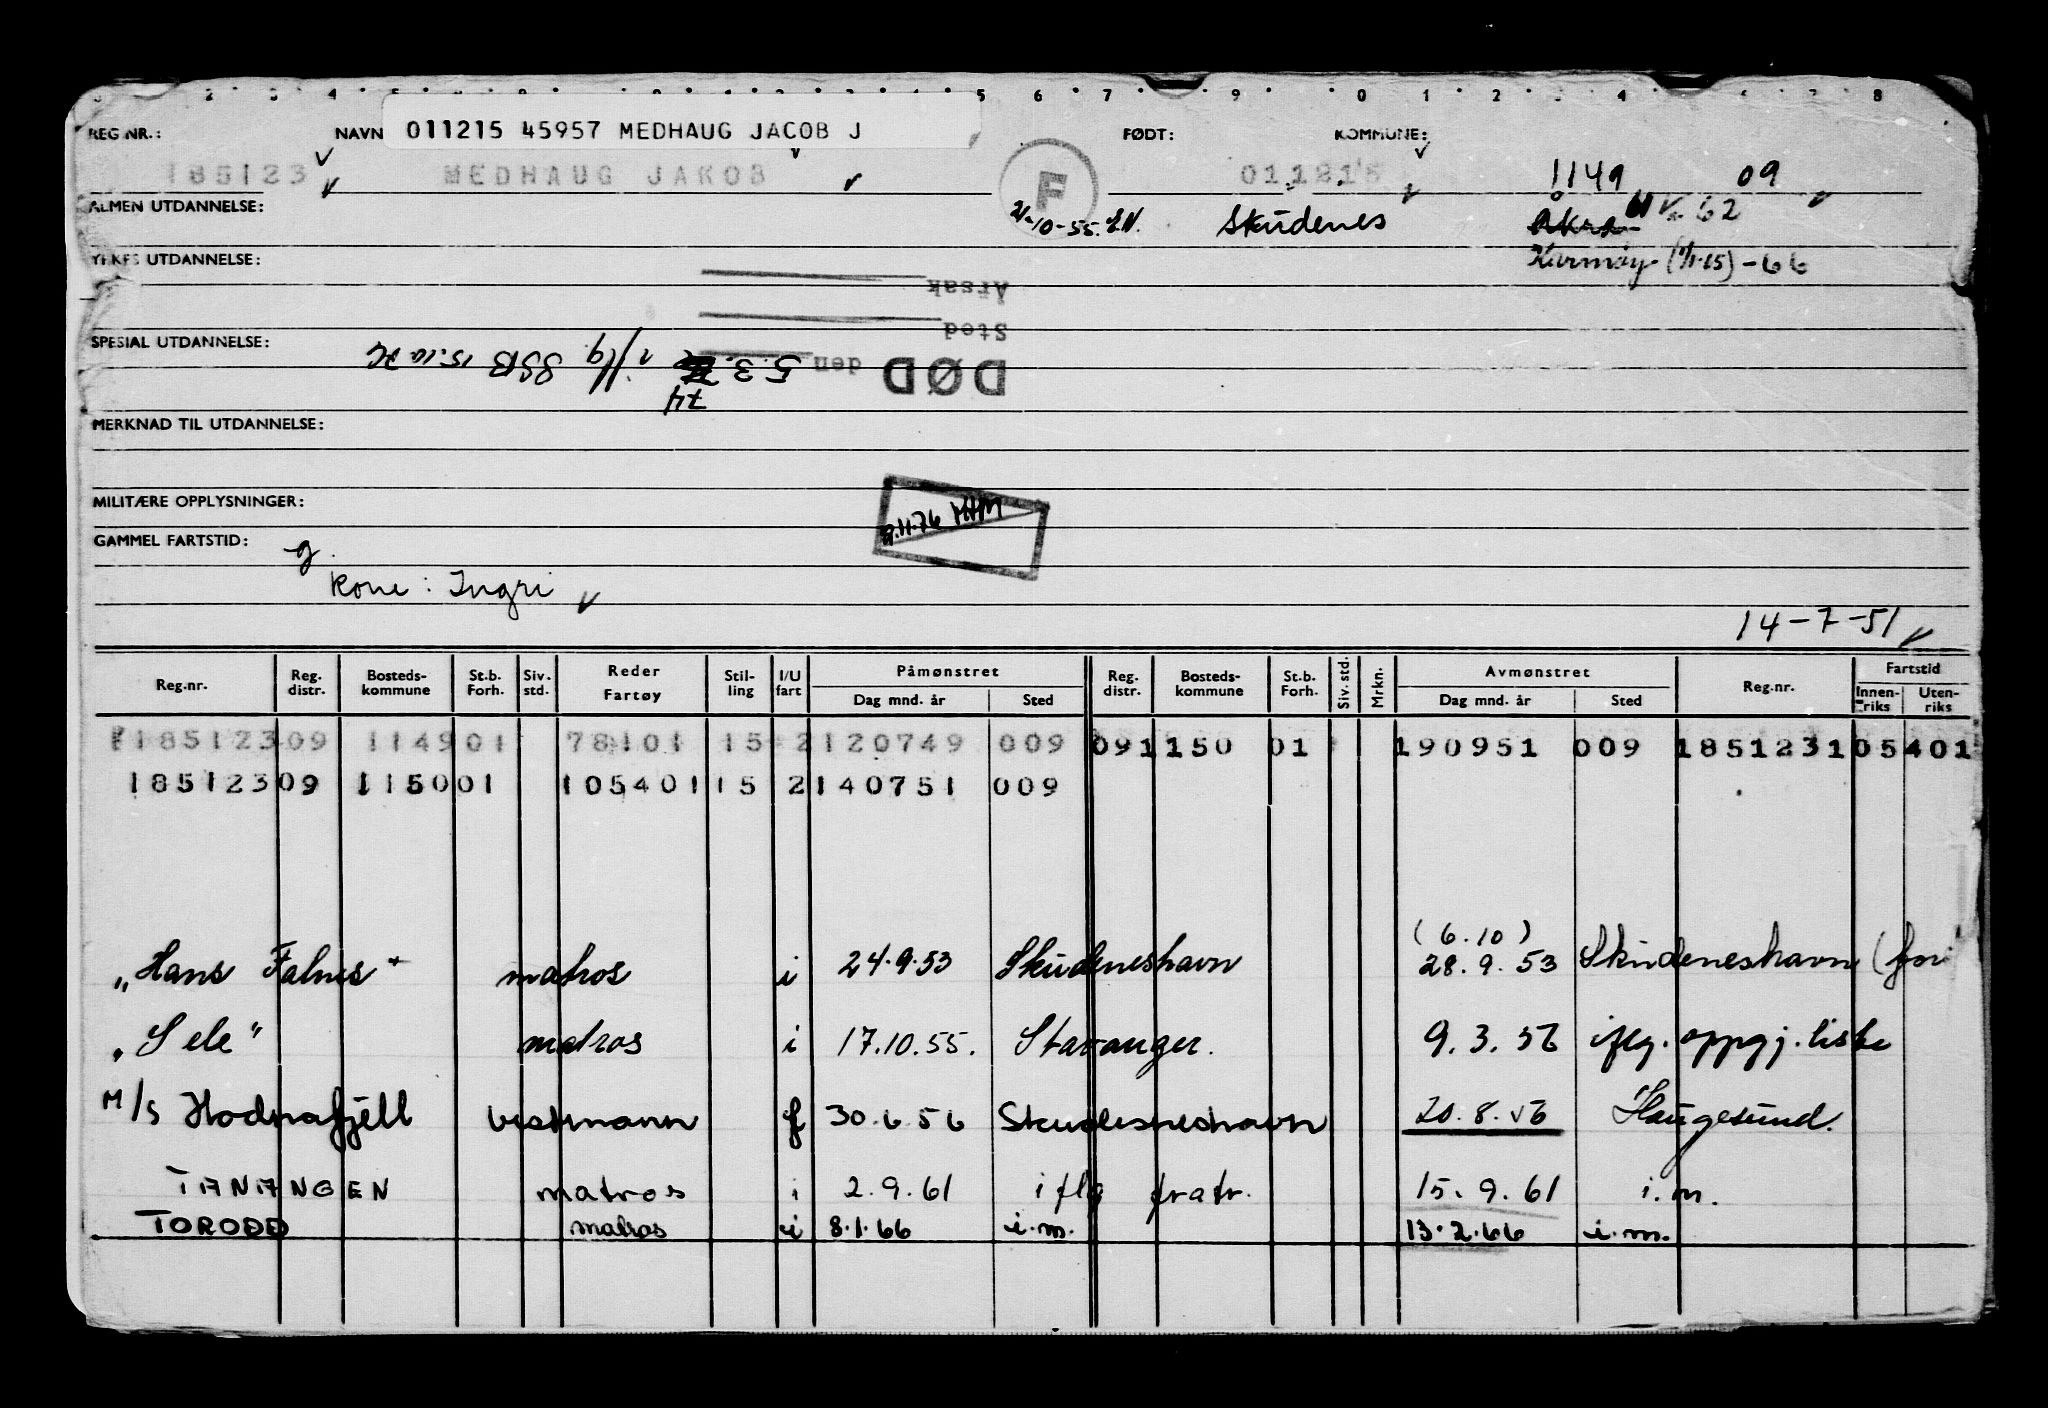 REG NR.: NAVN 011215 45957 MEDHAUG JACOB J FØDT: KOMMUNE:
185123 MEDHAUG JAKOB F 011215 1149 09
ALMEN UTDANNELSE: 21-10-55. Skudenes Åkra 62
YRKES UTDANNELSE: Karmøy (1/1-65) - 66
Årsak
Sted
SPESIAL UTDANNELSE:
DØD den 5.3. 74 iflg. SSB 15.10.76
MERKNAD TIL UTDANNELSE:
MILITÆRE OPPLYSNINGER: 9.11.76 MHM
GAMMEL FARTSTID: g.
kone: Ingri
14-7-51
Reg.nr. Reg. distr. Bosteds-kommune St.b. Forh. Siv. std. Reder Fartøy Stil-ling I/U fart Påmønstret Dag mnd. år Sted Reg. distr. Bosteds-kommune St.b. Forh. Siv. std. Mrkn. Avmønstret Dag mnd. år Sted Reg.nr. Fartstid Innen-riks Uten-riks
185123 09 1149 01 78101 15 2 120749 009 09 1150 01 190951 009 185123 105401
185123 09 1150 01 105401 15 2 140751 009
(6.10)
"Hans Falnes" matros i 24.9.53 Skudeneshavn 28.9.53 Skudeneshavn (for
"Sele" matros i 17.10.55. Stavanger. 9.3.56 iflg. oppgj. liste
M/S Hodnafjell bestmann f 30.6.56 Skudesneshavn 20.8.56 Haugesund.
TANANGEN matros i 2.9.61 iflg fratr. 15.9.61 i.m.
TORODD matros i 8.1.66 i.m. 13.2.66 i.m.